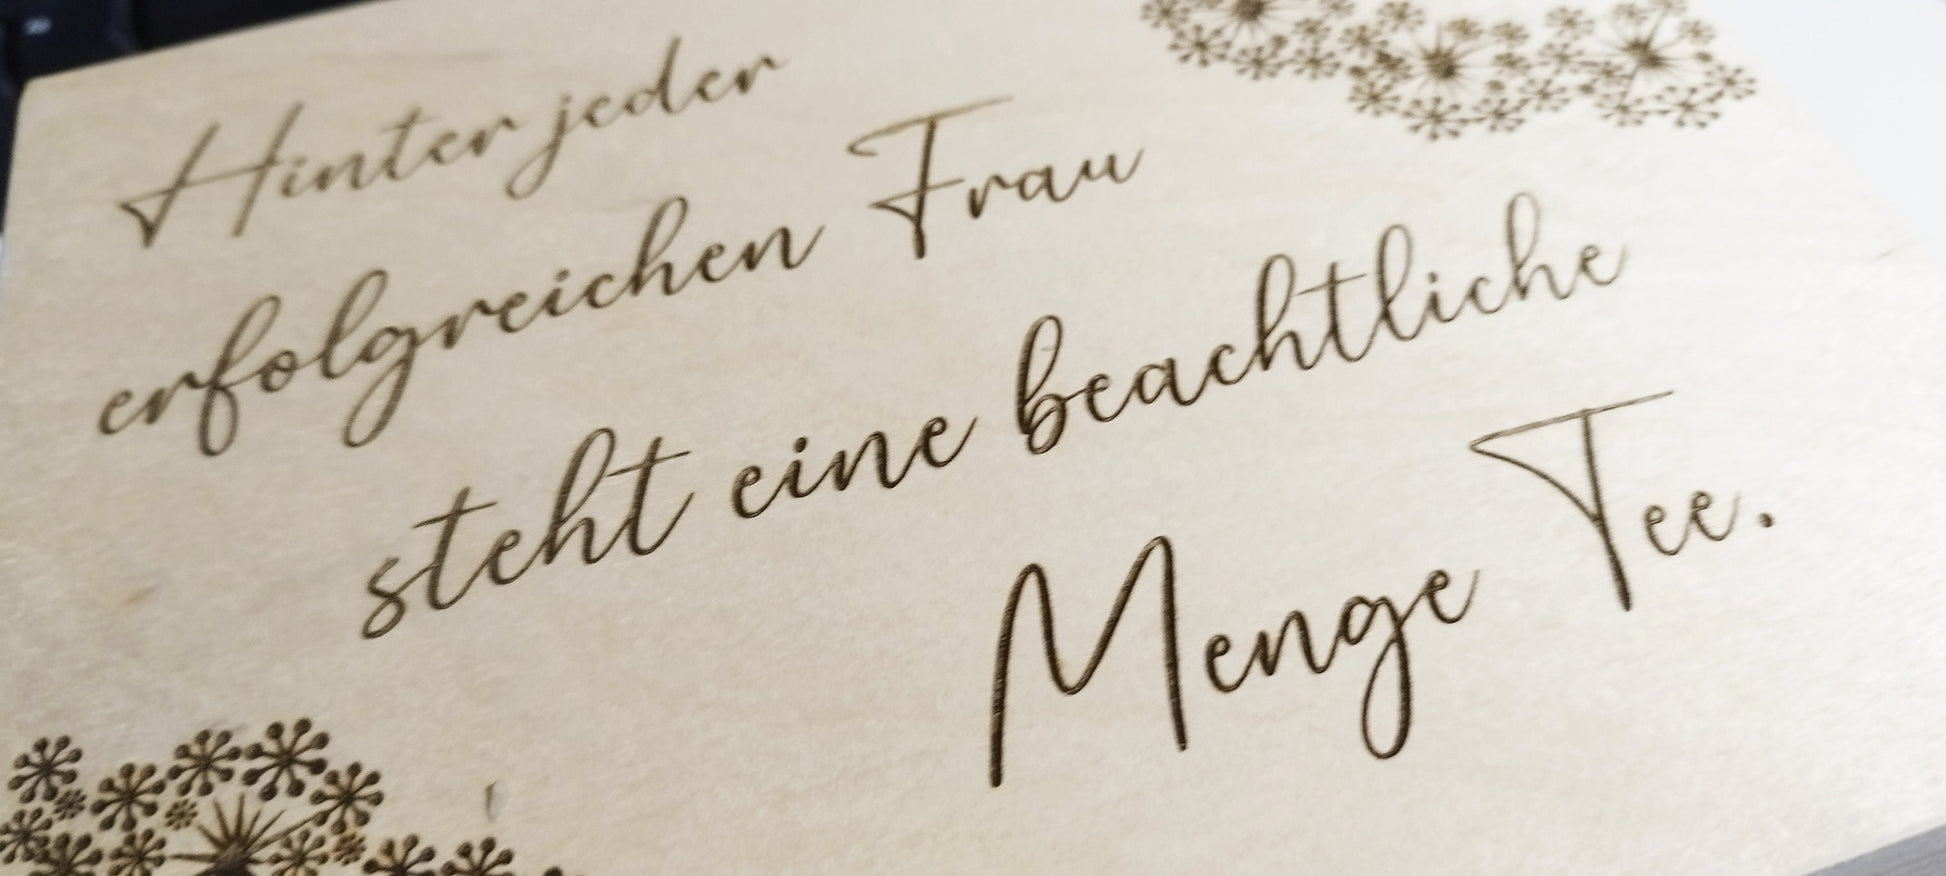 Hinter jeder
erfolgreichen Frau
steht eine beachtliche
Menge Tee.